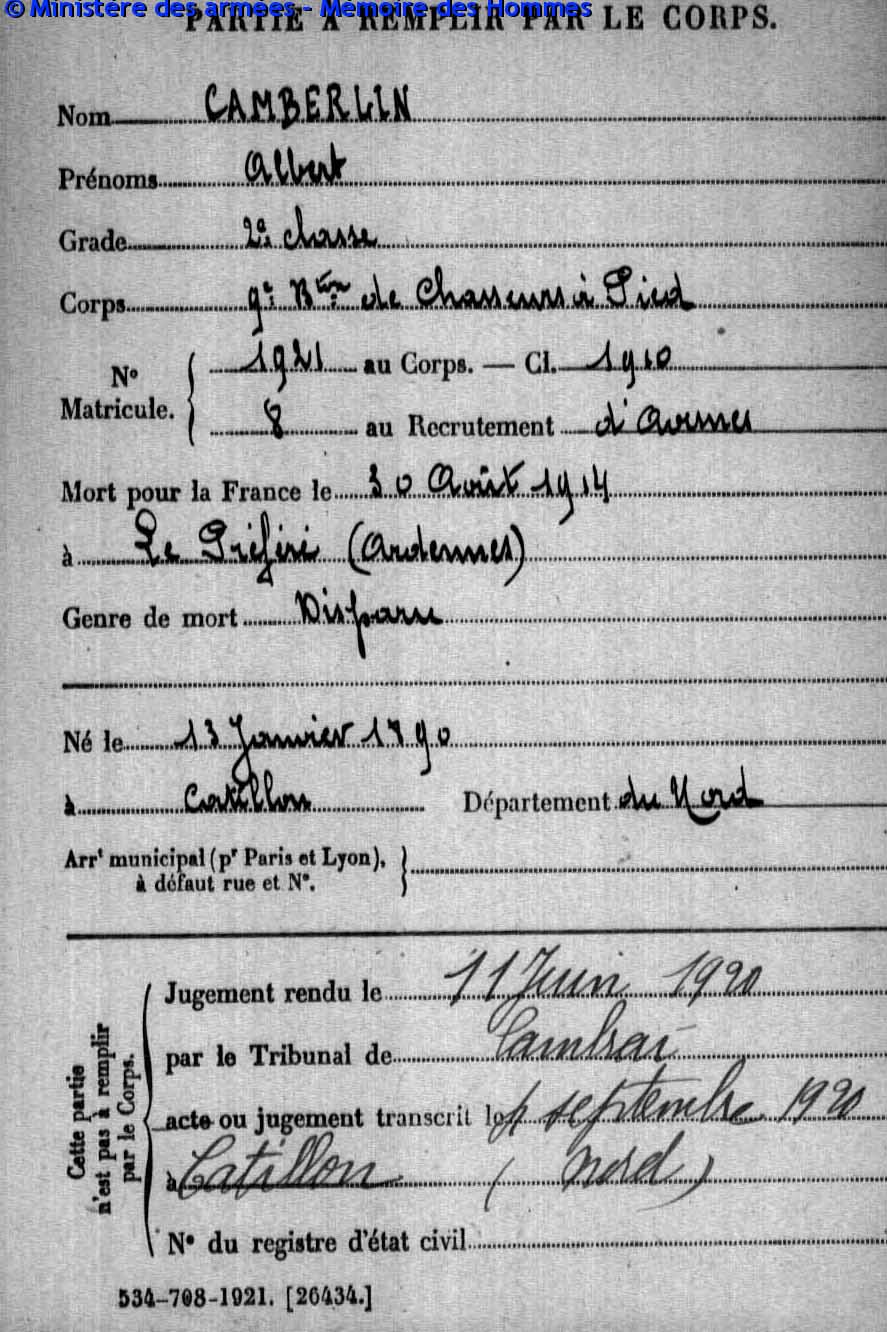 © Ministère des armées - Mémoire des Hommes
PARTIE A REMPLIR PAR LE CORPS.
Nom CAMBERLIN
Prénoms Albert
Grade 2e classe
Corps 9e Bton de Chasseurs à Pied
N° Matricule. 1921 au Corps. — Cl. 1910
8 au Recrutement d'Avesnes
Mort pour la France le 30 Août 1914
à Le Préféré (Ardennes)
Genre de mort Disparu
Né le 13 Janvier 1890
à Catillon Département du Nord
Arrt municipal (pr Paris et Lyon),
à défaut rue et N°.
Cette partie
n'est pas à remplir
par le Corps.
Jugement rendu le 11 Juin 1920
par le Tribunal de Cambrai
acte ou jugement transcrit le septembre 1920
à Catillon (Nord)
N° du registre d'état civil
534-708-1921. [26434.]